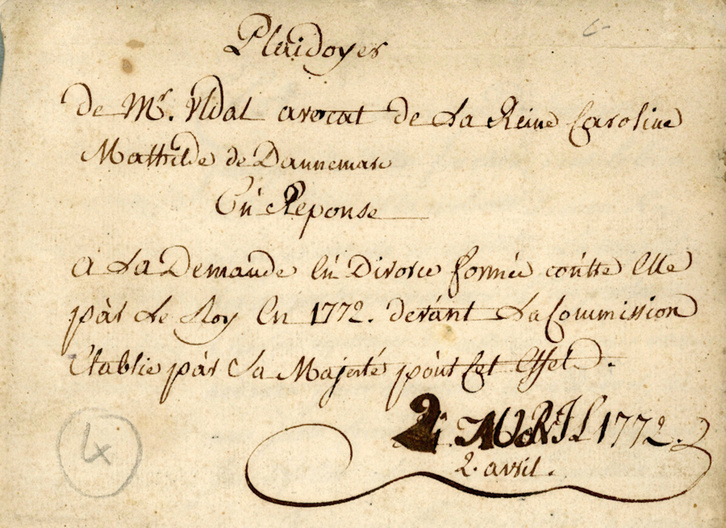 Plaidoyer
de Mr. Vidal avocat de La Reine Caroline
Mathilde de Dannemarc
En Reponse
a La Demande En Divorce formée contre Elle
par Le Roy En 1772. devant La Commission
Etablie par Sa Majesté pour Cet Effet.
2 AVRIL 1772.
2. avril.
4